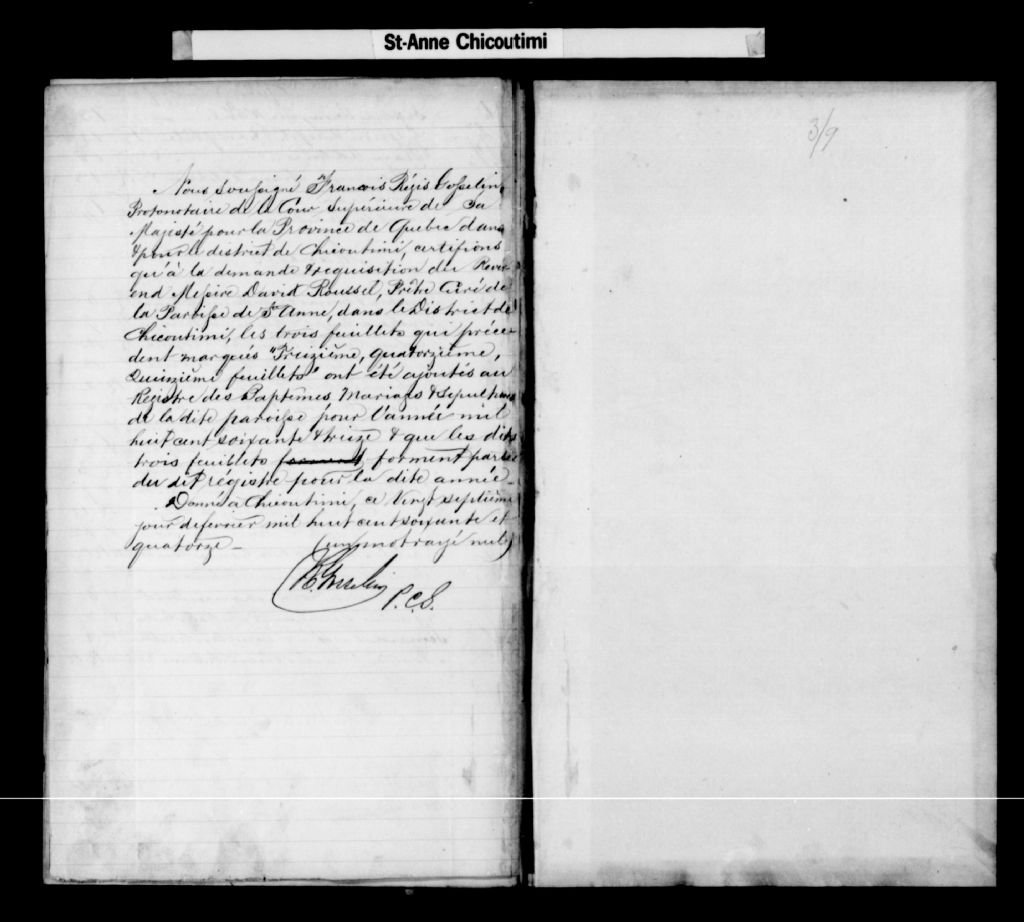 St-Anne Chicoutimi
3/9
Nous soussigné François Régis Gosselin,
Protonotaire de la Cour Supérieure de Sa
Majesté pour la Province de Quebec dans
& pour le district de Chicoutimi, certifions
qu'à la demande & requisition du Rever-
end Messire David Roussel, Prêtre Curé de
la Paroisse de Ste Anne, dans le District de
Chicoutimi, les trois feuillets qui précè-
dent marqués "Treizième, quatorzième,
Quinzième feuillets" ont été ajoutés au
Régistre des Baptêmes Mariages & Sepultures
de la dite paroisse pour l'année mil
huit cent soixante & treize & que les dits
trois feuillets forment forment partie
du dit régistre pour la dite année_
Donné à Chicoutimi, ce Vingt septième
jour de fevrier mil huit cent soixante et
quatorze_ (un mot rayé nul)
R. Gosselin
P.C.S.